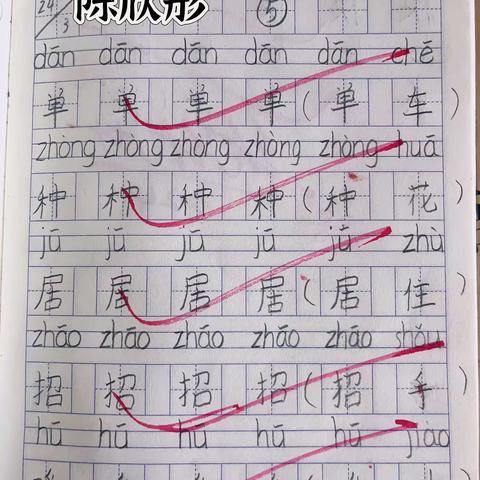 24/3 ⑤
dān dān dān dān dān chē
单 单 单 单 ( 单 车 )
zhòng zhòng zhòng zhòng zhòng huā
种 种 种 种 ( 种 花 )
jū jū jū jū jū zhù
居 居 居 居 ( 居 住 )
zhāo zhāo zhāo zhāo zhāo shǒu
招 招 招 招 ( 招 手 )
hū hū hū hū hū jiào